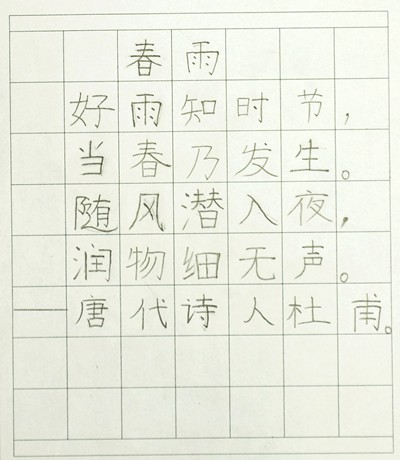 春雨
好雨知时节，
当春乃发生。
随风潜入夜，
润物细无声。
——唐代诗人杜甫。